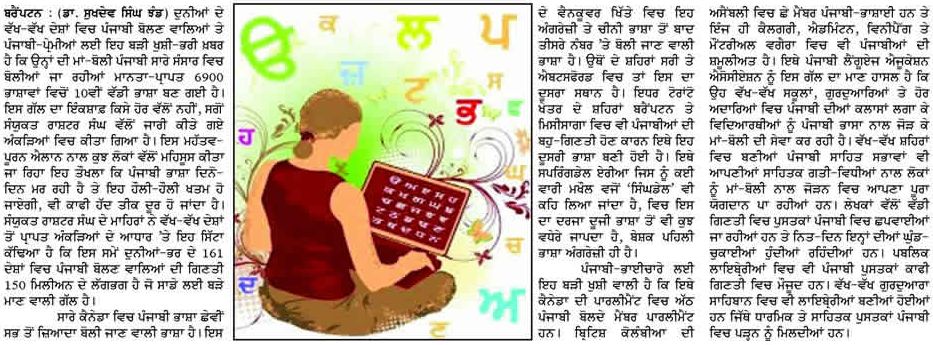 ਬਰੈਂਪਟਨ : (ਡਾ. ਸੁਖਦੇਵ ਸਿੰਘ ਝੰਡ) ਦੁਨੀਆਂ ਦੇ
ਵੱਖ-ਵੱਖ ਦੇਸ਼ਾਂ ਵਿਚ ਪੰਜਾਬੀ ਬੋਲਣ ਵਾਲਿਆਂ ਤੇ
ਪੰਜਾਬੀ-ਪ੍ਰੇਮੀਆਂ ਲਈ ਇਹ ਬੜੀ ਖੁਸ਼ੀ-ਭਰੀ ਖ਼ਬਰ
ਹੈ ਕਿ ਉਨ੍ਹਾਂ ਦੀ ਮਾਂ-ਬੋਲੀ ਪੰਜਾਬੀ ਸਾਰੇ ਸੰਸਾਰ ਵਿਚ
ਬੋਲੀਆਂ ਜਾ ਰਹੀਆਂ ਮਾਨਤਾ-ਪ੍ਰਾਪਤ 6900
ਭਾਸ਼ਾਵਾਂ ਵਿਚੋਂ 10ਵੀਂ ਵੱਡੀ ਭਾਸ਼ਾ ਬਣ ਗਈ ਹੈ।
ਇਸ ਗੱਲ ਦਾ ਇੰਕਸ਼ਾਫ਼ ਕਿਸੇ ਹੋਰ ਵੱਲੋਂ ਨਹੀਂ, ਸਗੋਂ
ਸੰਯੁਕਤ ਰਾਸ਼ਟਰ ਸੰਘ ਵੱਲੋਂ ਜਾਰੀ ਕੀਤੇ ਗਏ
ਅੰਕੜਿਆਂ ਵਿਚ ਕੀਤਾ ਗਿਆ ਹੈ। ਇਸ ਮਹੱਤਵ-
ਪੂਰਨ ਐਲਾਨ ਨਾਲ ਕੁਝ ਲੋਕਾਂ ਵੱਲੋਂ ਮਹਿਸੂਸ ਕੀਤਾ
ਜਾ ਰਿਹਾ ਇਹ ਤੌਖਲਾ ਕਿ ਪੰਜਾਬੀ ਭਾਸ਼ਾ ਦਿਨੋ-
ਦਿਨ ਮਰ ਰਹੀ ਹੈ ਤੇ ਇਹ ਹੌਲੀ-ਹੌਲੀ ਖਤਮ ਹੋ
ਜਾਏਗੀ, ਵੀ ਕਾਫੀ ਹੱਦ ਤੀਕ ਦੂਰ ਹੋ ਜਾਂਦਾ ਹੈ।
ਸੰਯੁਕਤ ਰਾਸ਼ਟਰ ਸੰਘ ਦੇ ਮਾਹਿਰਾਂ ਨੇ ਵੱਖ-ਵੱਖ ਦੇਸ਼ਾਂ
ਤੋਂ ਪ੍ਰਾਪਤ ਅੰਕੜਿਆਂ ਦੇ ਆਧਾਰ 'ਤੇ ਇਹ ਸਿੱਟਾ
ਕੱਢਿਆ ਹੈ ਕਿ ਇਸ ਸਮੇਂ ਦੁਨੀਆਂ-ਭਰ ਦੇ 161
ਦੇਸ਼ਾਂ ਵਿਚ ਪੰਜਾਬੀ ਬੋਲਣ ਵਾਲਿਆਂ ਦੀ ਗਿਣਤੀ
150 ਮਿਲੀਅਨ ਦੇ ਲੱਗਭਗ ਹੈ ਜੋ ਸਾਡੇ ਲਈ ਬੜੇ
ਮਾਣ ਵਾਲੀ ਗੱਲ ਹੈ।
ਸਾਰੇ ਕੈਨੇਡਾ ਵਿਚ ਪੰਜਾਬੀ ਭਾਸ਼ਾ ਛੇਵੀਂ
ਸਭ ਤੋਂ ਜ਼ਿਆਦਾ ਬੋਲੀ ਜਾਣ ਵਾਲੀ ਭਾਸ਼ਾ ਹੈ। ਇਸ
ੳ ਲ ਪ
ਕ ਨ ਖ
ਜ਼ ਟ ਭ
ਹ
ਘ
ਚ
ਦ ਅ
ਣ
ਦੇ ਵੈਨਕੂਵਰ ਖਿੱਤੇ ਵਿਚ ਇਹ
ਅੰਗਰੇਜ਼ੀ ਤੇ ਚੀਨੀ ਭਾਸ਼ਾ ਤੋਂ ਬਾਦ
ਤੀਸਰੇ ਨੰਬਰ 'ਤੇ ਬੋਲੀ ਜਾਣ ਵਾਲੀ
ਭਾਸ਼ਾ ਹੈ। ਉਥੋਂ ਦੇ ਸ਼ਹਿਰਾਂ ਸਰੀ ਤੇ
ਐਬਟਸਫੋਰਡ ਵਿਚ ਤਾਂ ਇਸ ਦਾ
ਦੂਸਰਾ ਸਥਾਨ ਹੈ। ਇਧਰ ਟੋਰਾਂਟੋ
ਖੇਤਰ ਦੇ ਸ਼ਹਿਰਾਂ ਬਰੈਂਪਟਨ ਤੇ
ਮਿਸੀਸਾਗਾ ਵਿਚ ਵੀ ਪੰਜਾਬੀਆਂ ਦੀ
ਬਹੁ-ਗਿਣਤੀ ਹੋਣ ਕਾਰਨ ਇਥੇ ਇਹ
ਦੂਸਰੀ ਭਾਸ਼ਾ ਬਣੀ ਹੋਈ ਹੈ। ਇਥੇ
ਸਪਰਿੰਗਡੇਲ ਏਰੀਆ ਜਿਸ ਨੂੰ ਕਈ
ਵਾਰੀ ਮਖੌਲ ਵਜੋਂ 'ਸਿੰਘਡੇਲ' ਵੀ
ਕਹਿ ਲਿਆ ਜਾਂਦਾ ਹੈ, ਵਿਚ ਇਸ
ਦਾ ਦਰਜਾ ਦੂਜੀ ਭਾਸ਼ਾ ਤੋਂ ਵੀ ਕੁਝ
ਵਧੇਰੇ ਜਾਪਦਾ ਹੈ, ਬੇਸ਼ਕ ਪਹਿਲੀ
ਭਾਸ਼ਾ ਅੰਗਰੇਜ਼ੀ ਹੀ ਹੈ।
ਪੰਜਾਬੀ-ਭਾਈਚਾਰੇ ਲਈ
ਇਹ ਬੜੀ ਖੁਸ਼ੀ ਵਾਲੀ ਹੈ ਕਿ ਇਥੇ
ਕੈਨੇਡਾ ਦੀ ਪਾਰਲੀਮੈਂਟ ਵਿਚ ਅੱਠ
ਪੰਜਾਬੀ ਬੋਲਦੇ ਮੈਂਬਰ ਪਾਰਲੀਮੈਂਟ
ਹਨ। ਬ੍ਰਿਟਿਸ਼ ਕੋਲੰਬੀਆ ਦੀ
ਅਸੈਂਬਲੀ ਵਿਚ ਛੇ ਮੈਂਬਰ ਪੰਜਾਬੀ-ਭਾਸ਼ਾਈ ਹਨ ਤੇ
ਇੰਜ ਹੀ ਕੈਲਗਰੀ, ਐਡਮਿੰਟਨ, ਵਿਨੀਪੈੱਗ ਤੇ
ਮੌਂਟਰੀਅਲ ਵਗੈਰਾ ਵਿਚ ਵੀ ਪੰਜਾਬੀਆਂ ਦੀ
ਸ਼ਮੂਲੀਅਤ ਹੈ। ਇਥੇ ਪੰਜਾਬੀ ਲੈਂਗੂਏਜ ਐਜੂਕੇਸ਼ਨ
ਐਸੋਸੀਏਸ਼ਨ ਨੂੰ ਇਸ ਗੱਲ ਦਾ ਮਾਣ ਹਾਸਲ ਹੈ ਕਿ
ਉਹ ਵੱਖ-ਵੱਖ ਸਕੂਲਾਂ, ਗੁਰਦੁਆਰਿਆਂ ਤੇ ਹੋਰ
ਅਦਾਰਿਆਂ ਵਿਚ ਪੰਜਾਬੀ ਦੀਆਂ ਕਲਾਸਾਂ ਲਗਾ ਕੇ
ਵਿਦਿਆਰਥੀਆਂ ਨੂੰ ਪੰਜਾਬੀ ਭਾਸਾ ਨਾਲ ਜੋੜ ਕੇ
ਮਾਂ-ਬੋਲੀ ਦੀ ਸੇਵਾ ਕਰ ਰਹੀ ਹੈ। ਵੱਖ-ਵੱਖ ਸ਼ਹਿਰਾਂ
ਵਿਚ ਬਣੀਆਂ ਪੰਜਾਬੀ ਸਾਹਿਤ ਸਭਾਵਾਂ ਵੀ
ਆਪਣੀਆਂ ਸਾਹਿਤਕ ਗਤੀ-ਵਿਧੀਆਂ ਨਾਲ ਲੋਕਾਂ
ਨੂੰ ਮਾਂ-ਬੋਲੀ ਨਾਲ ਜੋੜਨ ਵਿਚ ਆਪਣਾ ਪੂਰਾ
ਯੋਗਦਾਨ ਪਾ ਰਹੀਆਂ ਹਨ। ਲੇਖਕਾਂ ਵੱਲੋਂ ਵੱਡੀ
ਗਿਣਤੀ ਵਿਚ ਪੁਸਤਕਾਂ ਪੰਜਾਬੀ ਵਿਚ ਛਪਵਾਈਆਂ
ਜਾ ਰਹੀਆਂ ਹਨ ਤੇ ਨਿਤ-ਦਿਨ ਇਨ੍ਹਾਂ ਦੀਆਂ ਘੁੰਡ-
ਚੁਕਾਈਆਂ ਹੁੰਦੀਆਂ ਰਹਿੰਦੀਆਂ ਹਨ। ਪਬਲਿਕ
ਲਾਇਬ੍ਰੇਰੀਆਂ ਵਿਚ ਵੀ ਪੰਜਾਬੀ ਪੁਸਤਕਾਂ ਕਾਫੀ
ਗਿਣਤੀ ਵਿਚ ਮੌਜੂਦ ਹਨ। ਵੱਖ-ਵੱਖ ਗੁਰਦੁਆਰਾ
ਸਾਹਿਬਾਨ ਵਿਚ ਵੀ ਲਾਇਬ੍ਰੇਰੀਆਂ ਬਣੀਆਂ ਹੋਈਆਂ
ਹਨ ਜਿੱਥੇ ਧਾਰਮਿਕ ਤੇ ਸਾਹਿਤਕ ਪੁਸਤਕਾਂ ਪੰਜਾਬੀ
ਵਿਚ ਪੜ੍ਹਨ ਨੂੰ ਮਿਲਦੀਆਂ ਹਨ।